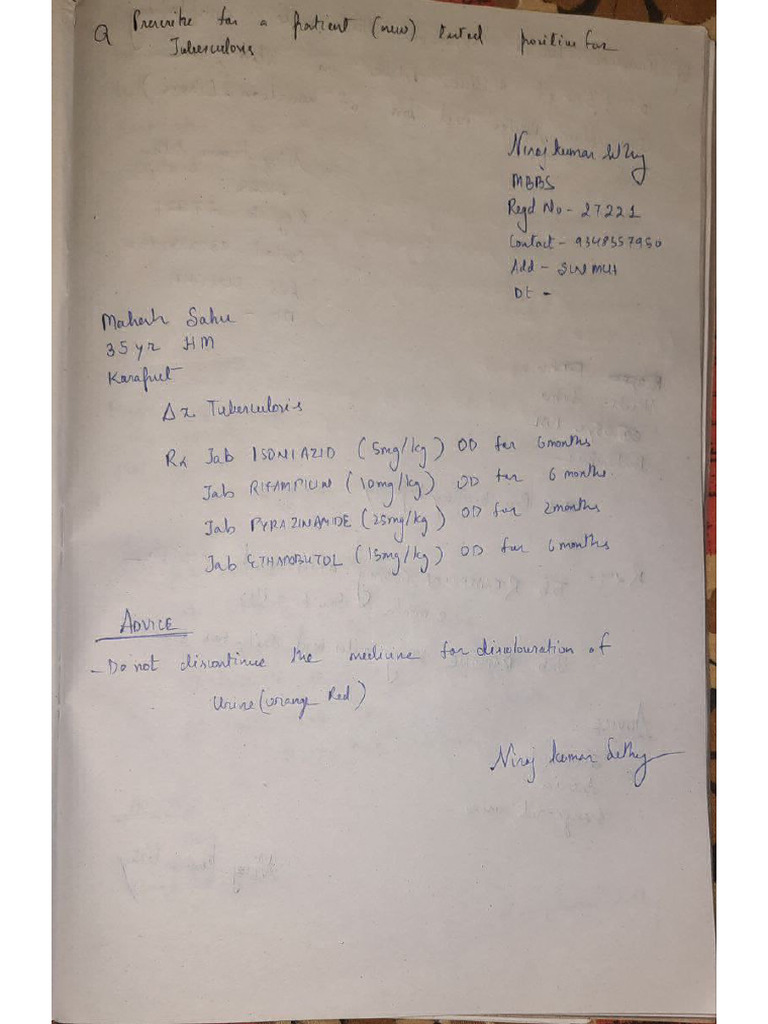 Q Prescribe for a patient (new) tested positive for
Tuberculosis
Niraj kumar Sethy
MBBS
Regd No - 27221
Contact - 9348557950
Add - SLNMCH
Dt -
Mahesh Sahu
35 yr HM
Koraput
Δx Tuberculosis
Rx Tab ISONIAZID (5mg/kg) OD for 6 months
Tab RIFAMPICIN (10mg/kg) OD for 6 months
Tab PYRAZINAMIDE (25mg/kg) OD for 2 months
Tab ETHAMBUTOL (15mg/kg) OD for 6 months
ADVICE
- Do not discontinue the medicine for discolouration of
Urine (orange Red)
Niraj kumar Sethy